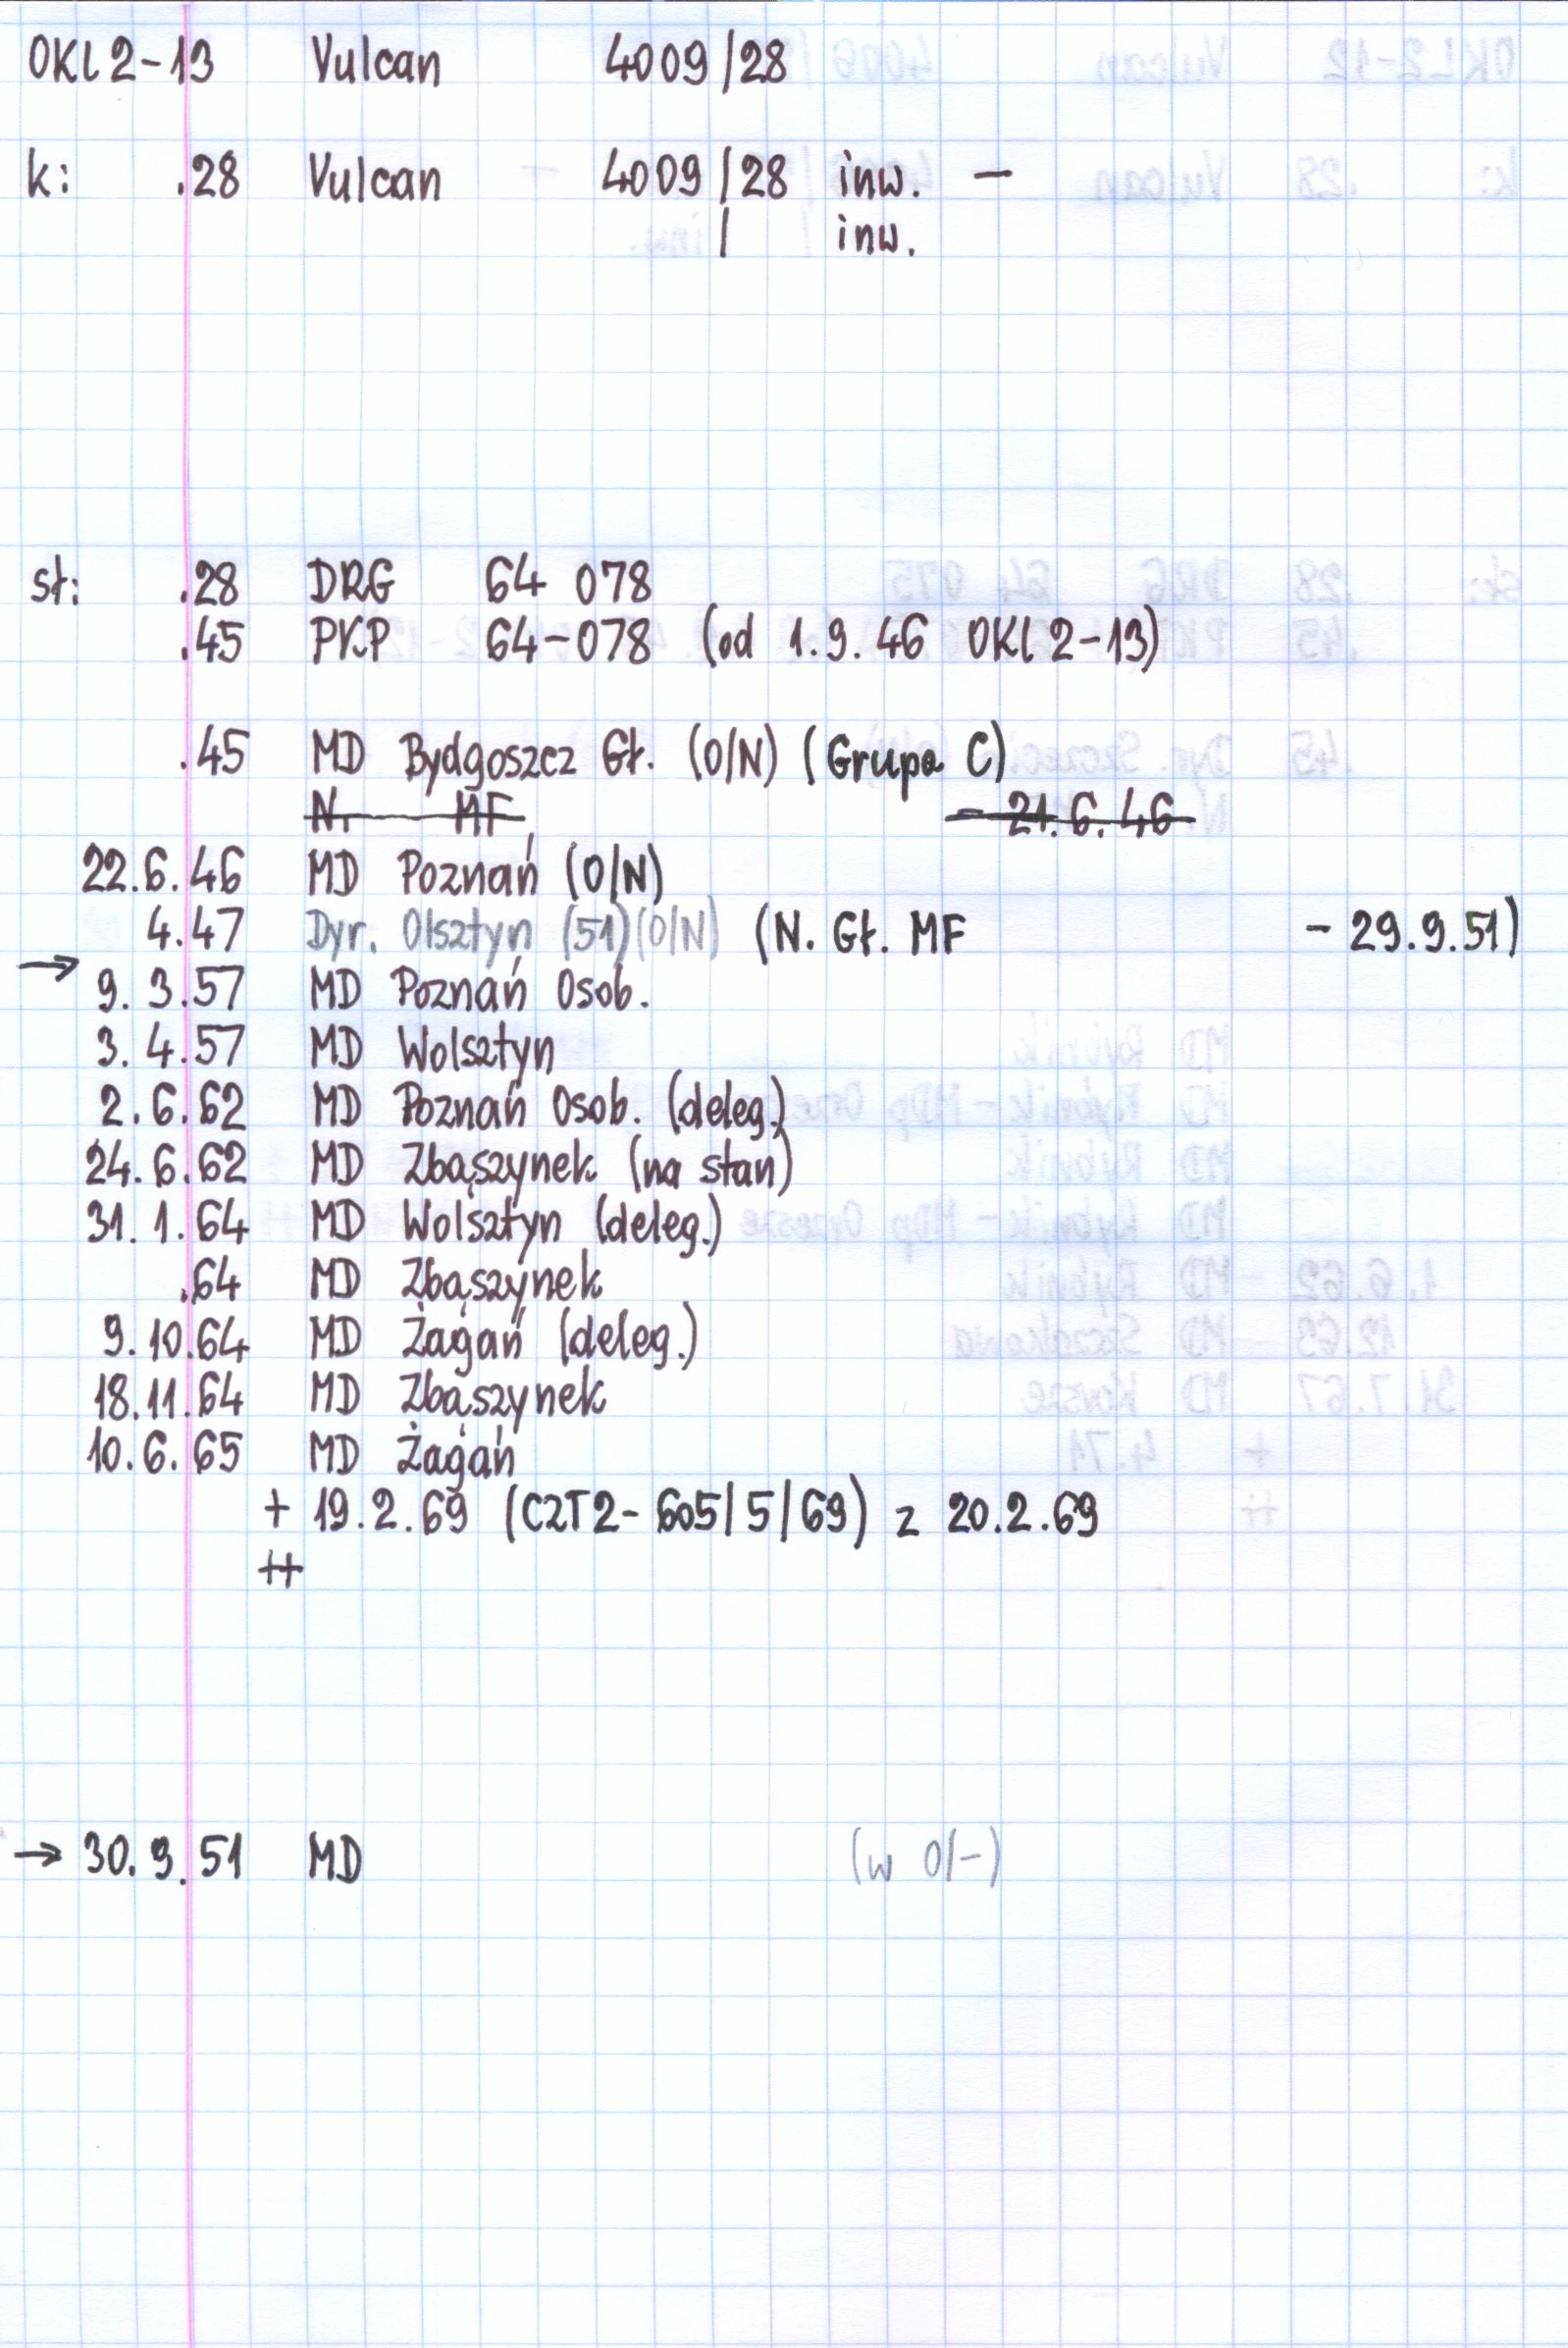 OKl 2-13 Vulcan 4009/28
k: .28 Vulcan 4009/28 inw. –
/ inw.
sł: .28 DRG 64 078
.45 PKP 64-078 (od 1.9.46 OKl 2-13)
.45 MD Bydgoszcz Gł. (O/N) (Grupa C)
N. MF - 21.6.46
22.6.46 MD Poznań (O/N)
4.47 Dyr. Olsztyn (51) (O/N) (N. Gł. MF - 29.9.51)
→
9.3.57 MD Poznań Osob.
3.4.57 MD Wolsztyn
2.6.62 MD Poznań Osob. (deleg.)
24.6.62 MD Zbąszynek (na stan)
31.1.64 MD Wolsztyn (deleg.)
.64 MD Zbąszynek
9.10.64 MD Żagań (deleg.)
18.11.64 MD Zbąszynek
10.6.65 MD Żagań
+ 19.2.69 (CZT2-605/5/69) z 20.2.69
++
→ 30.9.51 MD (w O/-)